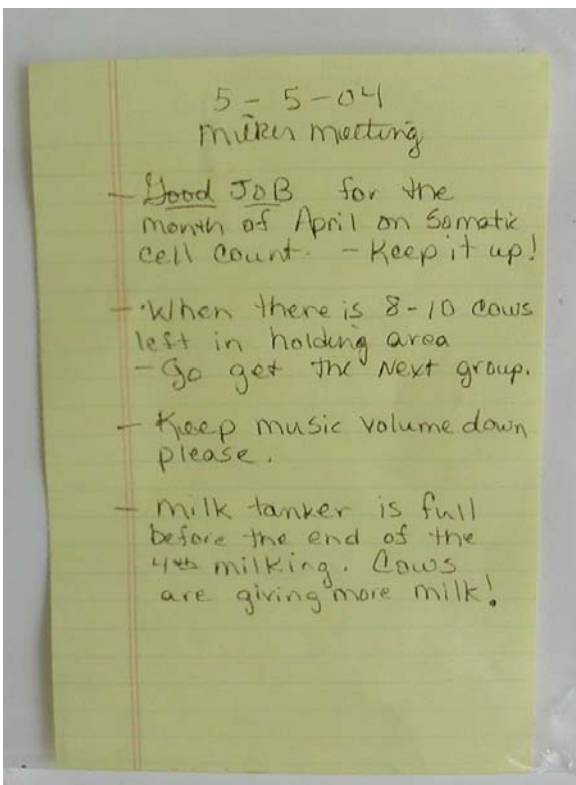 5-5-04
milker meeting
- Good JOB for the
month of April on Somatic
cell count. - Keep it up!
- When there is 8-10 cows
left in holding area
- Go get the Next group.
- Keep music volume down
please.
- milk tanker is full
before the end of the
4th milking. Cows
are giving more milk!